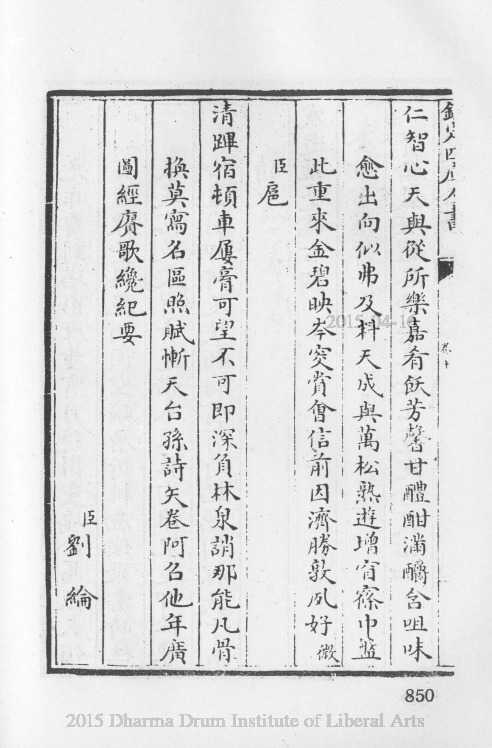 欽定四庫全書
卷十
仁智心天與從所樂嘉肴飫芳馨甘醴酣滿酹含咀味
愈出向似弗及料天成與萬松熟遊增宿寐巾盤
此重來金碧映岑穾賞會信前因濟勝敦夙好微
臣扈
清蹕宿頓車屢膏可望不可即深負林泉誚那能凡骨
換莫寫名區照賦慚天台孫詩矢卷阿召他年廣
圖經賡歌纔紀要
臣劉綸
850
2015-04-16
2015 Dharma Drum Institute of Liberal Arts